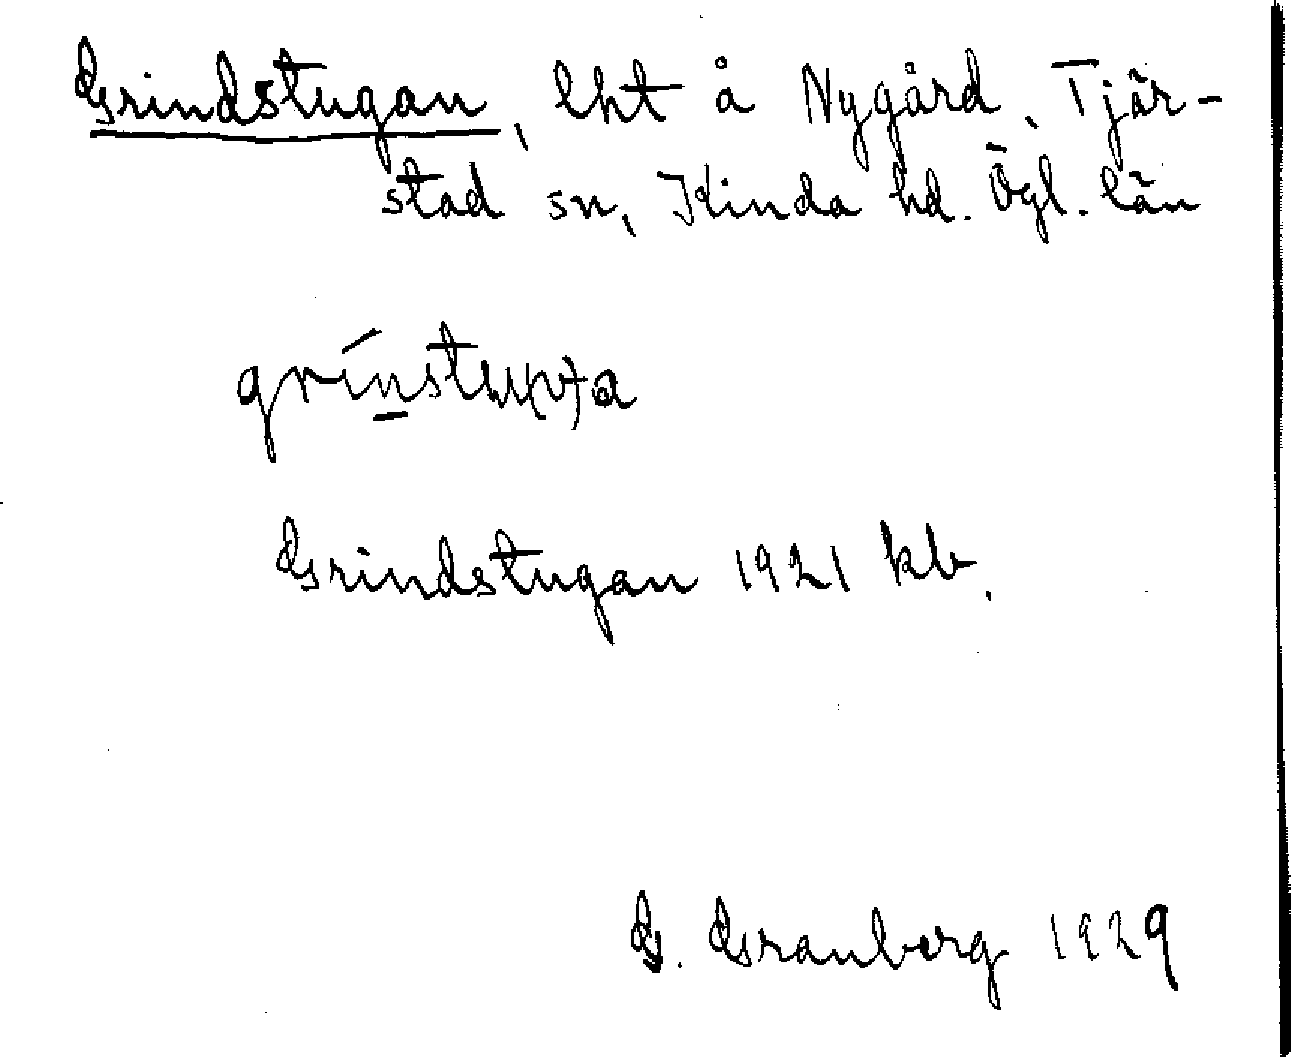 Grindstugan, lht å Nygård, Tjär-
stad sn, Kinda hd. Ögl. län
grínstu(v)a
Grindstugan 1921 kb.
G. Granberg 1929